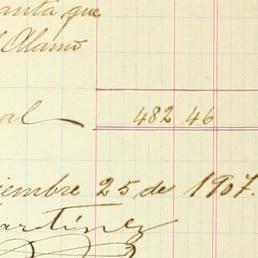 anta que
l Alamo
al 482 46
iembre 25 de 1907.
artínez